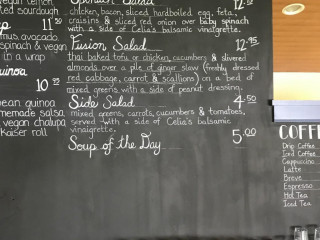 Spinach Salad
12
chicken, bacon, sliced hardboiled egg, feta,
craisins & sliced red onion over baby spinach
with a side of Celia's balsamic vinaigrette.
Fusion Salad 12.95
thai baked tofu or chicken, cucumbers & slivered
almonds over a pile of ginger slaw (freshly dressed
red cabbage, carrot & scallions) on a bed of
mixed greens with a side of peanut dressing.
Side Salad 4.50
mixed greens, carrots, cucumbers & tomatoes,
served with a side of Celia's balsamic
vinaigrette.
Soup of the Day 5.00
vegan lemon
11.50
mus, avocado,
spinach & vegan
in a wrap
uinoa
10.95
bean quinoa
omemade salsa
vegan chalupa
kaiser roll
COFFE
Drip Coffee
Iced Coffee
Cappuccino
Latte
Breve
Espresso
Hot Tea
Iced Tea